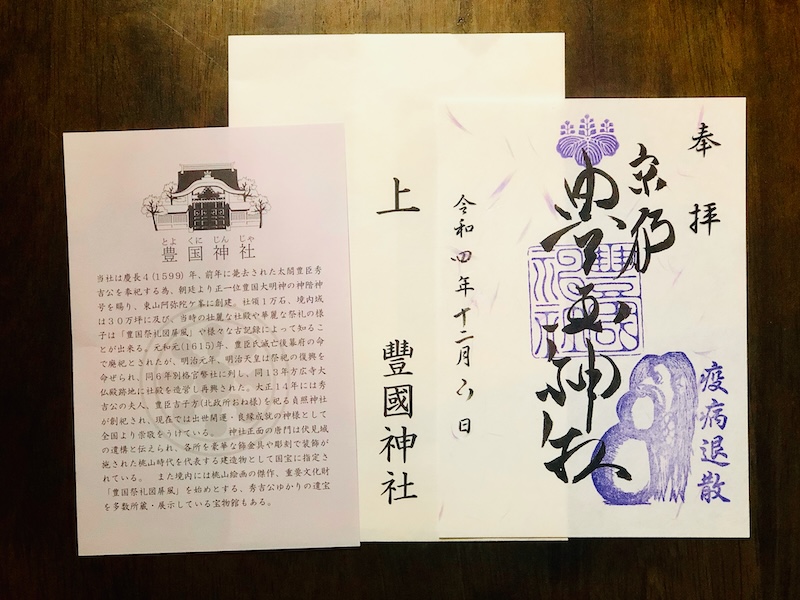 とよ くに じん じゃ
豊国神社
当社は慶長4(1599)年、前年に薨去された太閤豊臣秀
吉公を奉祀する為、朝廷より正一位豊国大明神の神階神
号を賜り、東山阿弥陀ケ峯に創建。社領1万石、境内域
は30万坪に及び、当時の壮麗な社殿や華麗な祭礼の様
子は「豊国祭礼図屏風」や様々な古記録によって知るこ
とが出来る。元和元(1615)年、豊臣氏滅亡後幕府の命
で廃祀とされたが、明治元年、明治天皇は祭祀の復興を
命ぜられ、同6年別格官幣社に列し、同13年方広寺大
仏殿跡地に社殿を造営し再興された。大正14年には秀
吉公の夫人、豊臣吉子方(北政所おね様)を祀る貞照神社
が創祀され、現在では出世開運・良縁成就の神様として
全国より崇敬をうけている。 神社正面の唐門は伏見城
の遺構と伝えられ、各所を豪華な錺金具や彫刻で装飾が
施された桃山時代を代表する建造物として国宝に指定さ
れている。 また境内には桃山絵画の傑作、重要文化財
「豊国祭礼図屏風」を始めとする、秀吉公ゆかりの遺宝
を多数所蔵・展示している宝物館もある。
上
豐國神社
奉拝
京都
豊国神社
豐國神社
疫病退散
令和四年十二月六日